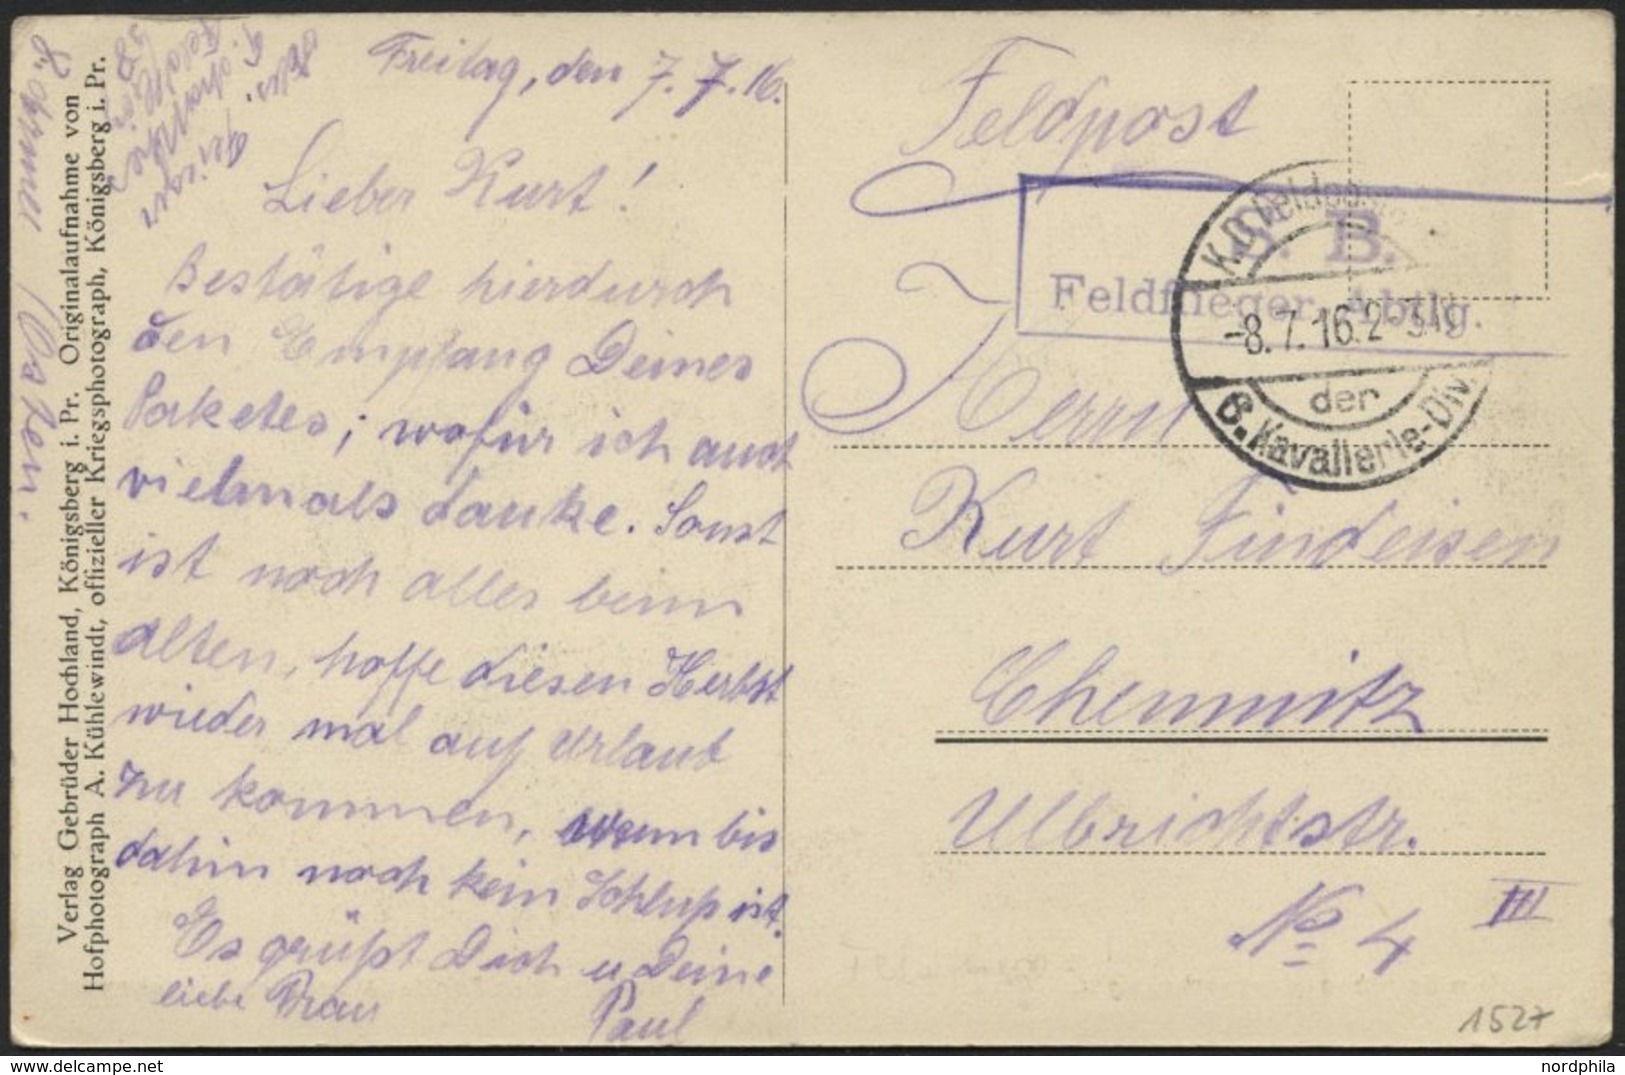 Freitag, den 7.7.16.
Lieber Kurt!
Bestätige hierdurch
den Empfang Deines
Paketes; wofür ich auch
vielmals danke. Sonst
ist noch alles beim
alten, hoffe diesen Herbst
wieder mal auf Urlaub
zu kommen, wenn bis
dahin noch kein Schluß ist.
Es grüßt Dich u Deine
liebe Frau Paul
8. Armee Osten.
Verlag Gebrüder Hochland, Königsberg i. Pr. Originalaufnahme von
Hofphotograph A. Kühlewindt, offizieller Kriegsphotograph, Königsberg i. Pr.
Feldpost
S. B.
Feldflieger-Abtlg.
K.D. Feldpost
-8.7.16. 2-3
der
6. Kavallerie-Div.
Herrn
Kurt Findeisen
Chemnitz
Ulbrichtstr.
No 4 III
1527
www.delcampe.net
nordphila